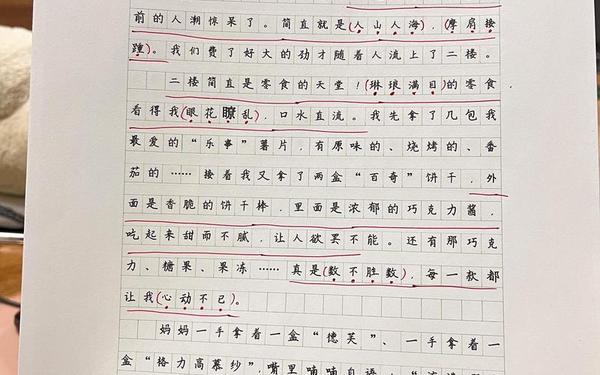 前的人潮惊呆了。简直就是(人山人海),(摩肩接
踵)。我们费了好大的劲才随着人流上了二楼。
二楼简直是零食的天堂!(琳琅满目)的零食
看得我(眼花瞭乱),口水直流。我先拿了几包我
最爱的“乐事”薯片,有原味的、烧烤的、番
茄的……接着我又拿了两盒“百奇”饼干,外
面是香脆的饼干棒,里面是浓郁的巧克力酱,
吃起来甜而不腻,让人欲罢不能。还有那巧克
力、糖果、果冻……真是(数不胜数),每一款都
让我(心动不已)。
妈妈一手拿着一盒“德芙”、一手拿着一
盒“格力高慕纱”,嘴里喃喃自语:“